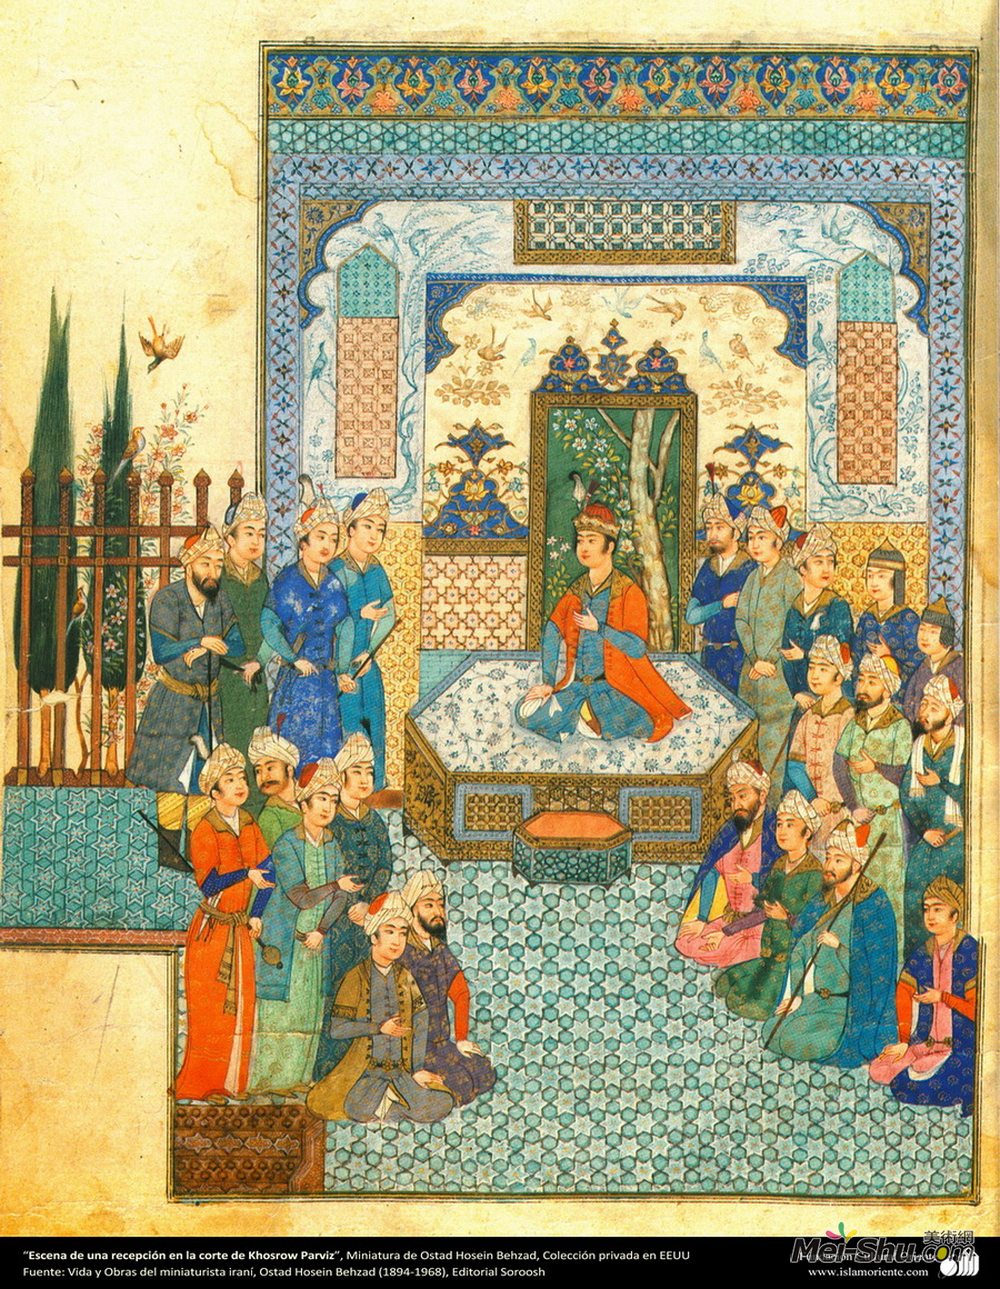 “Escena de una recepción en la corte de Khosrow Parviz”, Miniatura de Ostad Hosein Behzad, Colección privada en EEUU
Fuente: Vida y Obras del miniaturista iraní, Ostad Hosein Behzad (1894-1968), Editorial Soroosh
美術網
Mei-Shu.com
www.islamoriente.com